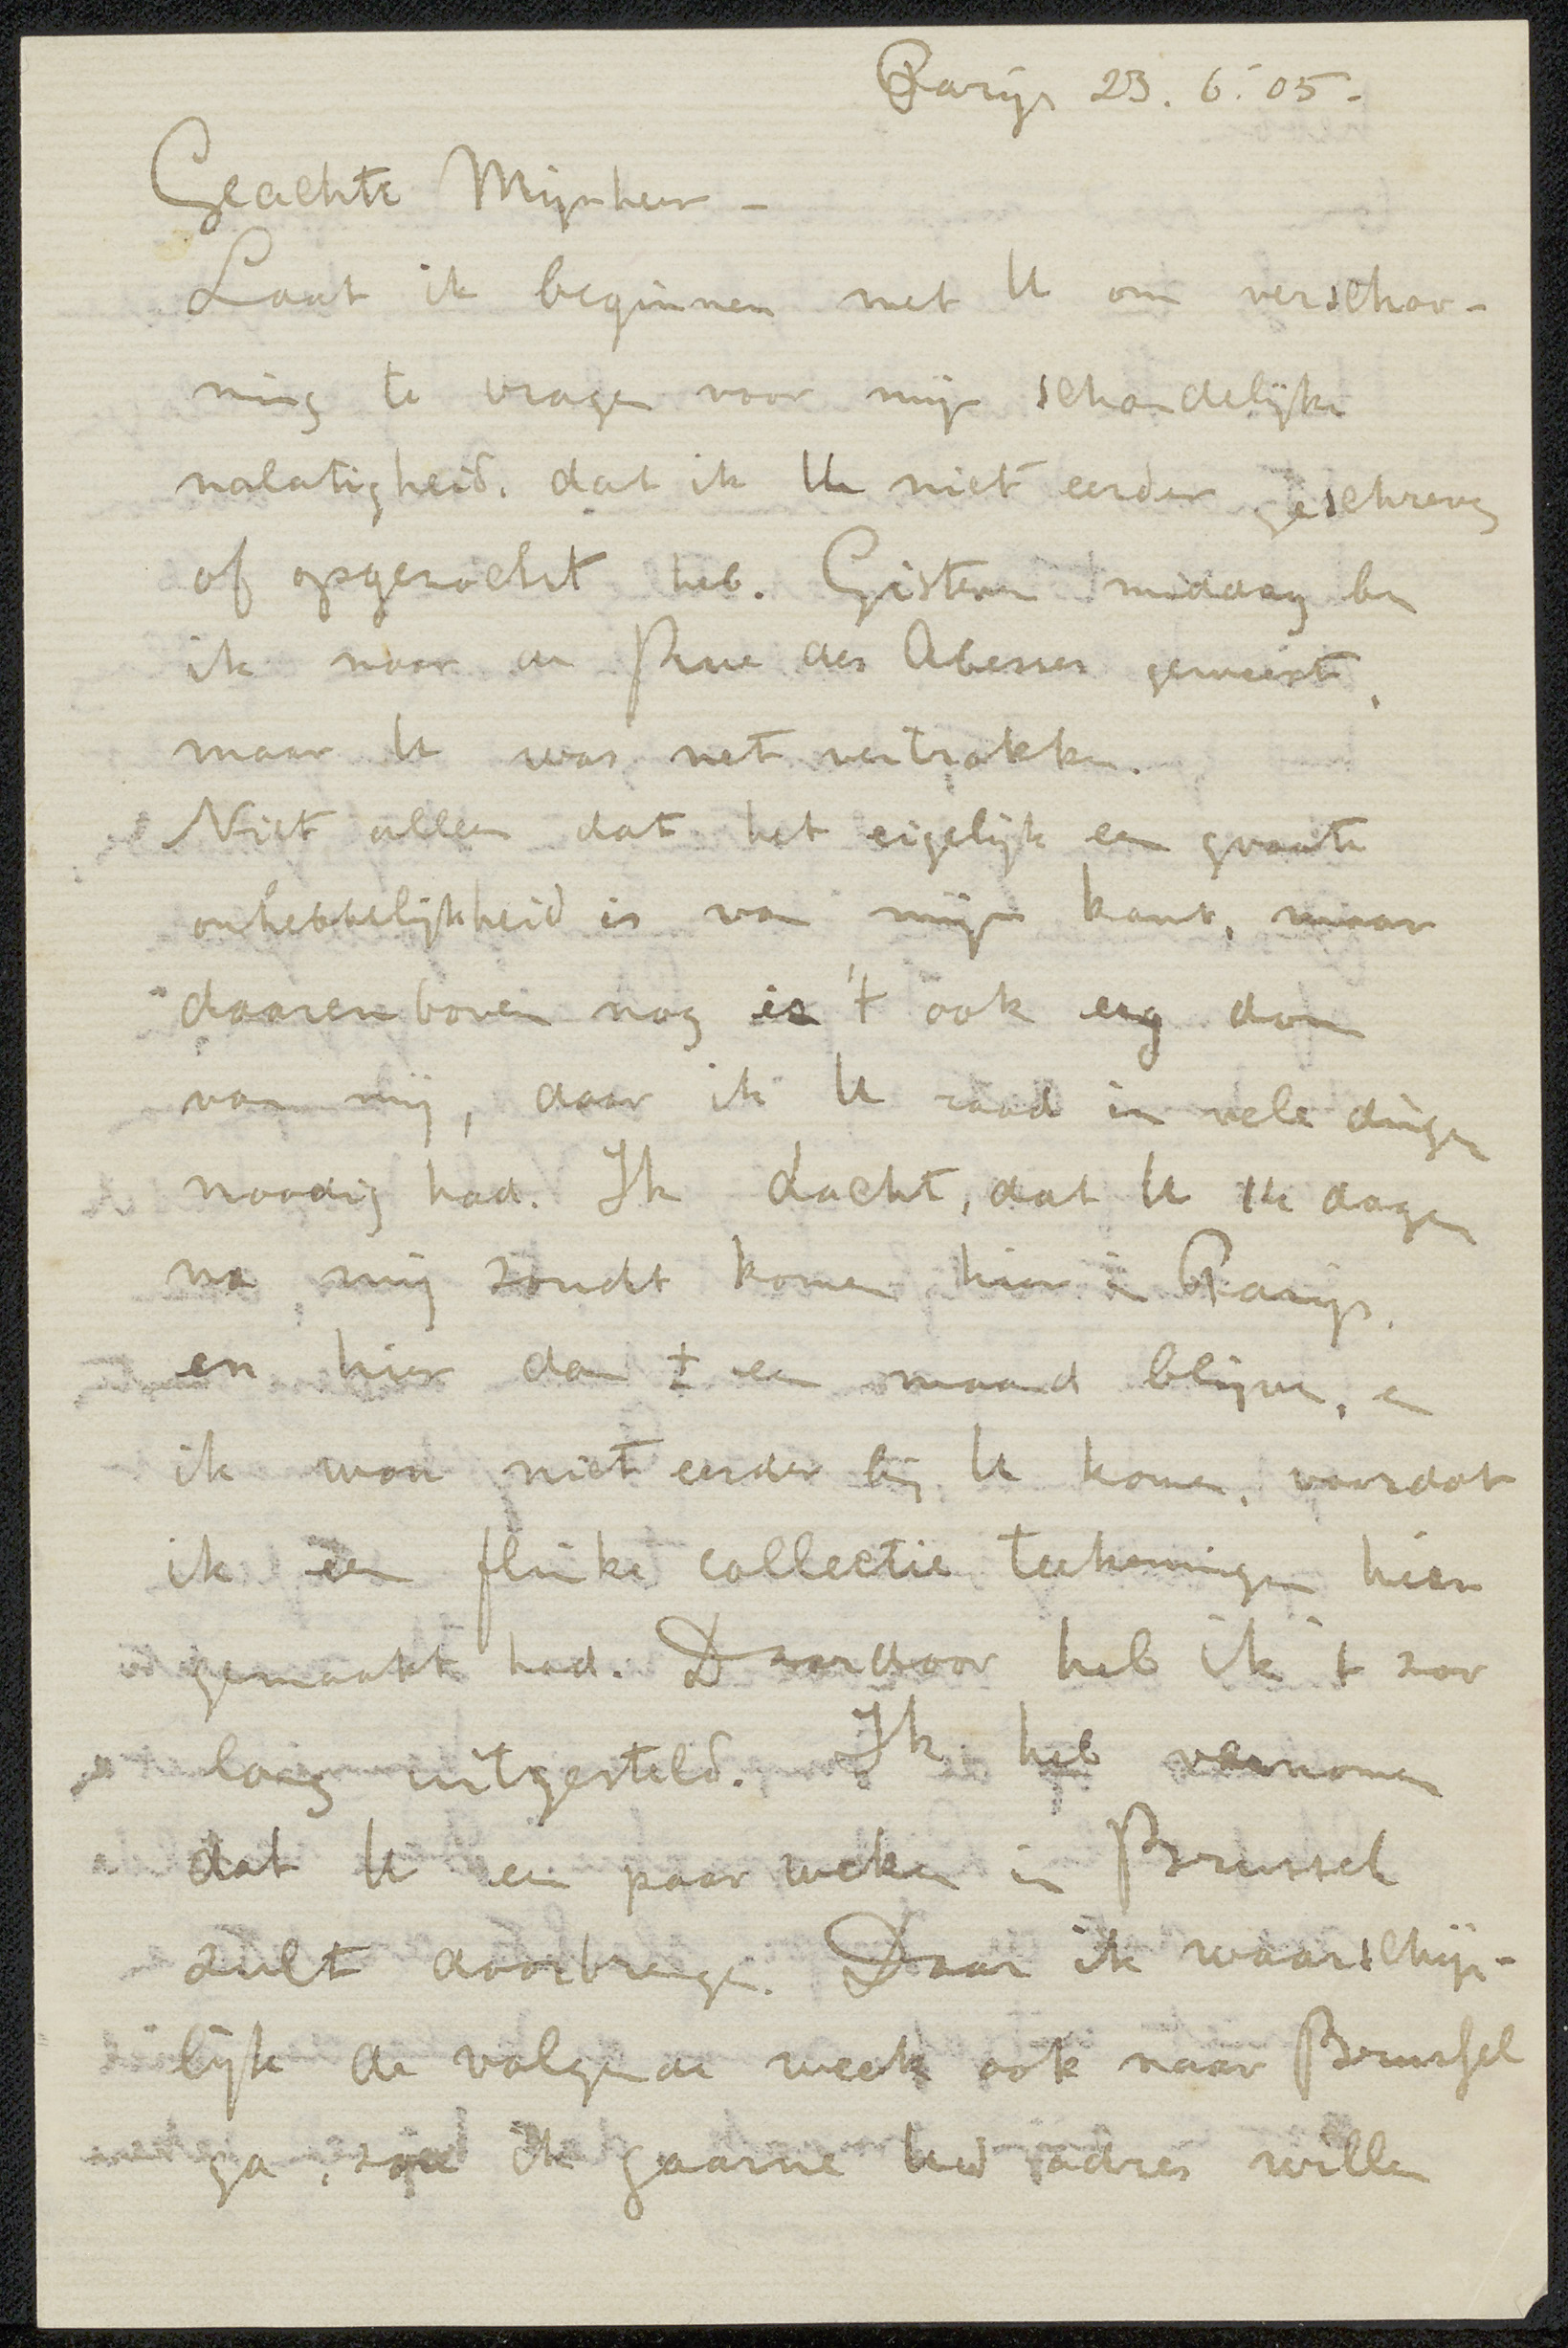 Parijs 23. 6. 05.
Geachte Mijnheer –
Laat ik beginnen met U om verschoo-
ning te vragen voor mijn schandelijke
nalatigheid, dat ik U niet eerder geschreven
of opgezocht heb. Gisteren middag ben
ik naar de Rue des Abesses geweest,
maar U was net vertrokken.
Niet alleen dat het eigelijk een groote
onhebbelijkheid is van mijn kant, maar
daarenboven nog is 't ook erg dom
van mij, daar ik U raad in vele dingen
noodig had. Ik dacht, dat U 14 dagen
na mij zoudt komen hier in Parijs,
en hier dan ± een maand blijven, en
ik wou niet eerder bij U komen, voordat
ik een flinke collectie teekeningen hier
gemaakt had. Daardoor heb ik 't zoo
lang uitgesteld. Ik heb vernomen
dat U een paar weken in Brussel
zult doorbrengen. Daar ik waarschijn-
lijk de volgende week ook naar Brussel
ga, zou ik gaarne Uw adres willen